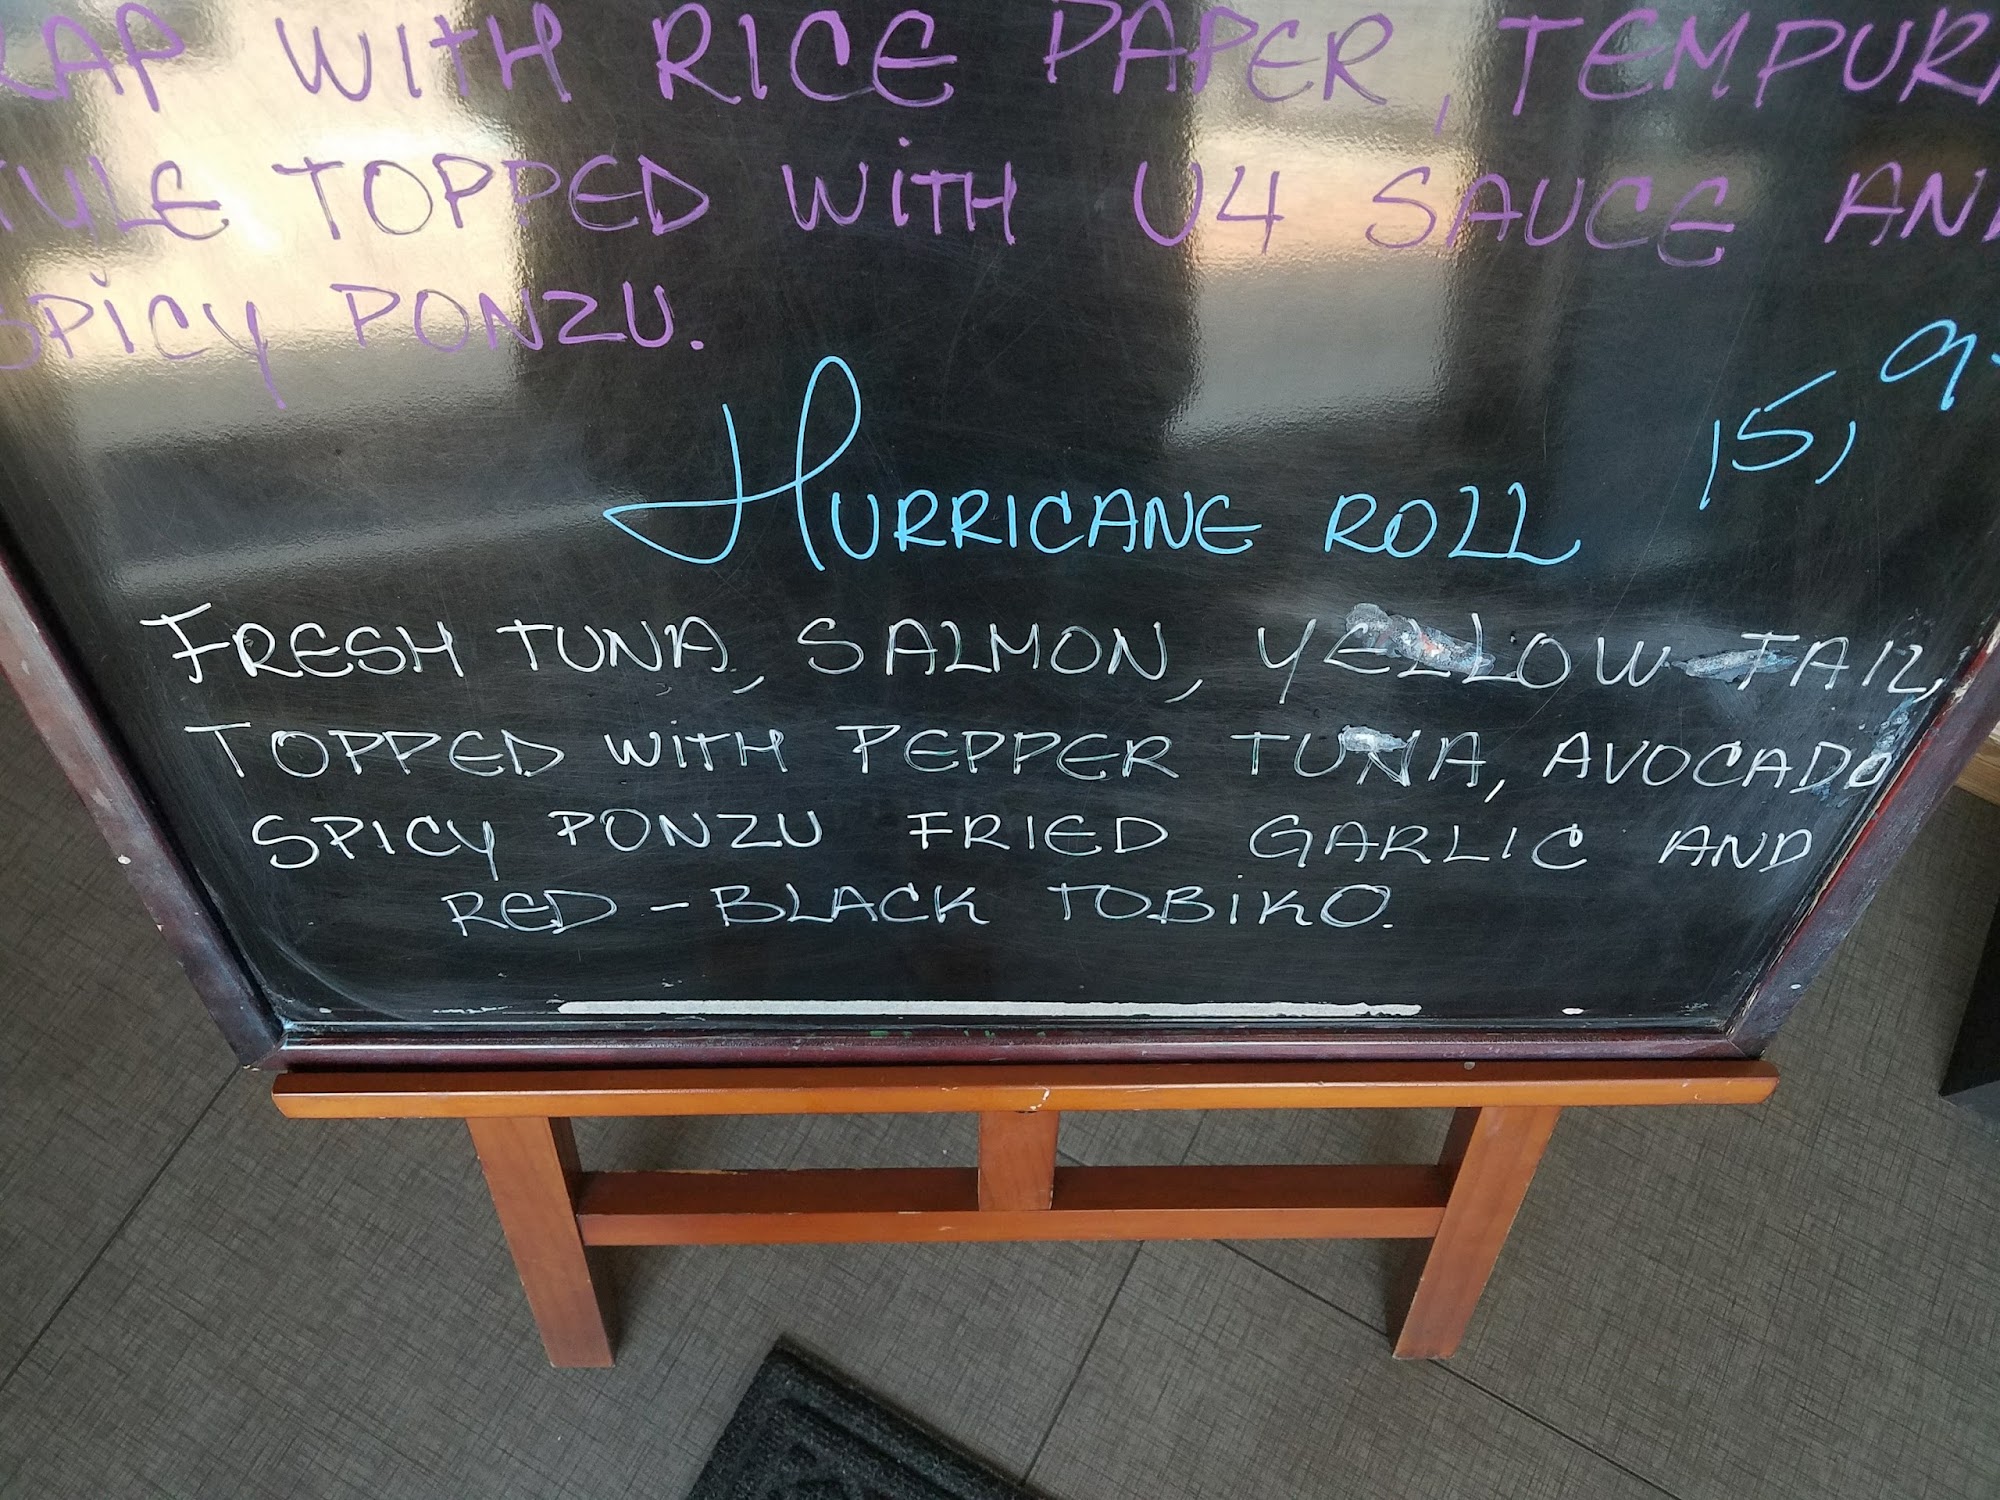 RAP WITH RICE PAPER, TEMPURA
TYLE TOPPED WITH U4 SAUCE AND
SPICY PONZU.
15,9
HURRICANE ROLL
FRESH TUNA, SALMON, YELLOW TAIL,
TOPPED WITH PEPPER TUNA, AVOCADO
SPICY PONZU FRIED GARLIC AND
RED-BLACK TOBIKO.